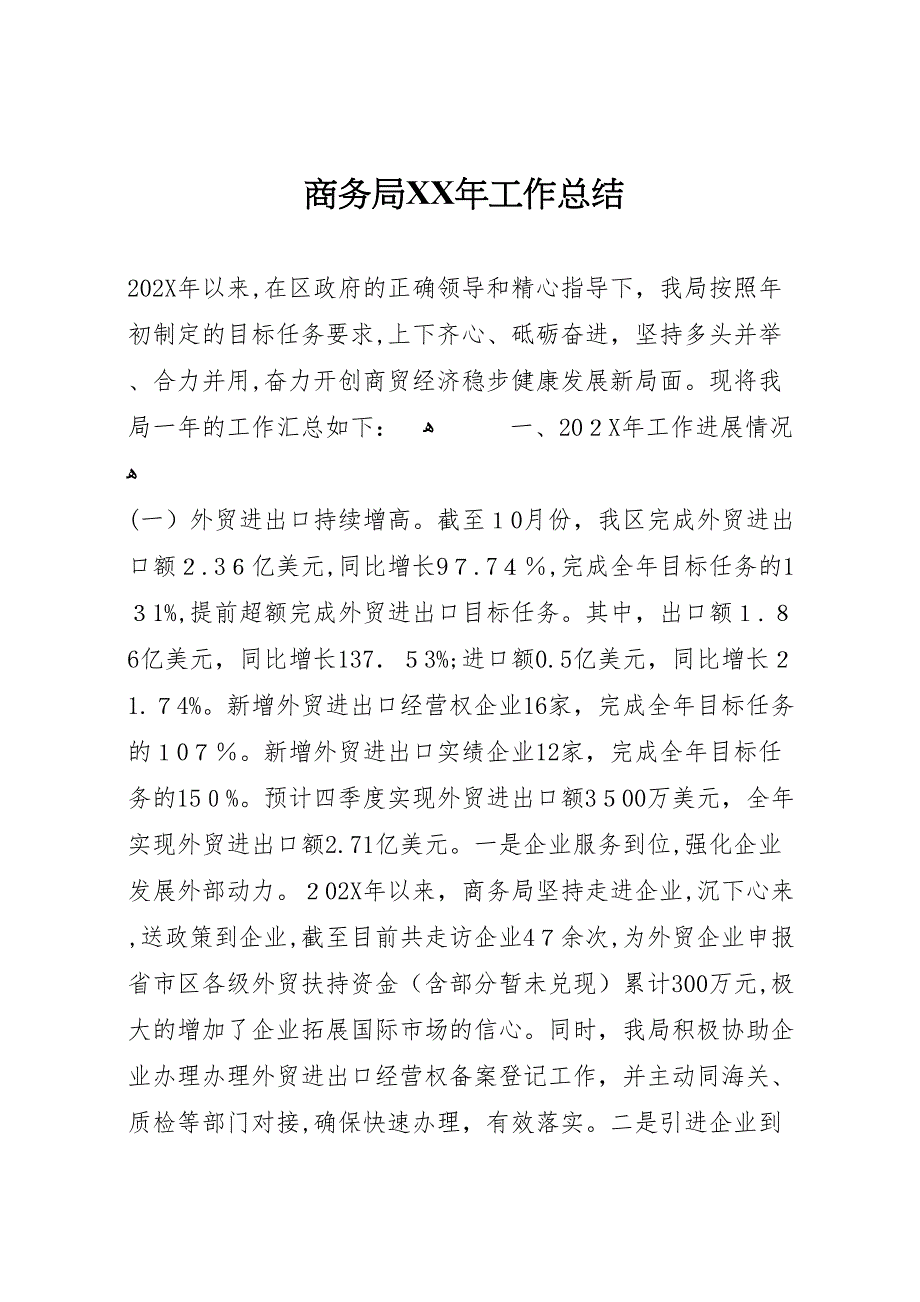 商务局XX年工作总结
202X年以来,在区政府的正确领导和精心指导下，我局按照年
初制定的目标任务要求,上下齐心、砥砺奋进，坚持多头并举
、合力并用,奋力开创商贸经济稳步健康发展新局面。现将我
局一年的工作汇总如下： ﻫ 一、20２X年工作进展情况
ﻫ
(一）外贸进出口持续增高。截至１0月份，我区完成外贸进出
口额２.3６亿美元,同比增长9７.７４％,完成全年目标任务的1
３1%,提前超额完成外贸进出口目标任务。其中，出口额１.８
6亿美元，同比增长137．５3%;进口额0.5亿美元，同比增长２
1.７4%。新增外贸进出口经营权企业16家，完成全年目标任务
的１０７％。新增外贸进出口实绩企业12家，完成全年目标任
务的15０%。预计四季度实现外贸进出口额3５00万美元，全年
实现外贸进出口额2.71亿美元。一是企业服务到位,强化企业
发展外部动力。２02X年以来，商务局坚持走进企业,沉下心来
,送政策到企业,截至目前共走访企业4７余次,为外贸企业申报
省市区各级外贸扶持资金（含部分暂未兑现）累计300万元,极
大的增加了企业拓展国际市场的信心。同时，我局积极协助企
业办理办理外贸进出口经营权备案登记工作，并主动同海关、
质检等部门对接,确保快速办理，有效落实。二是引进企业到